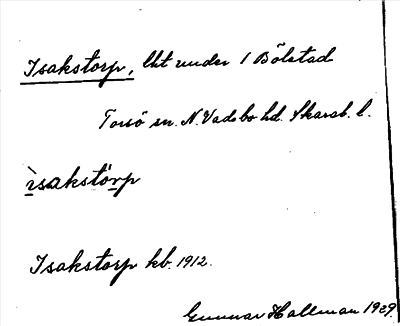 Isakstorp, lht under 1 Bölstad
Torsö sn. N. Vadsbo hd. Skarab. l.
ìsakstörp
Isakstorp kb. 1912.
Gunnar Hallman 1929.